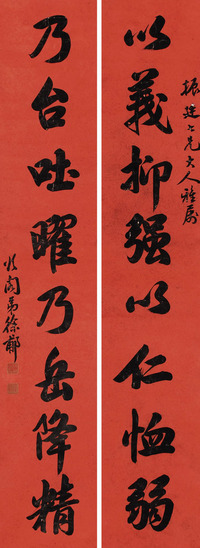 振建仁兄大人雅屬
以義抑强以仁恤弱
乃台吐曜乃岳降精
頌閣弟徐郙